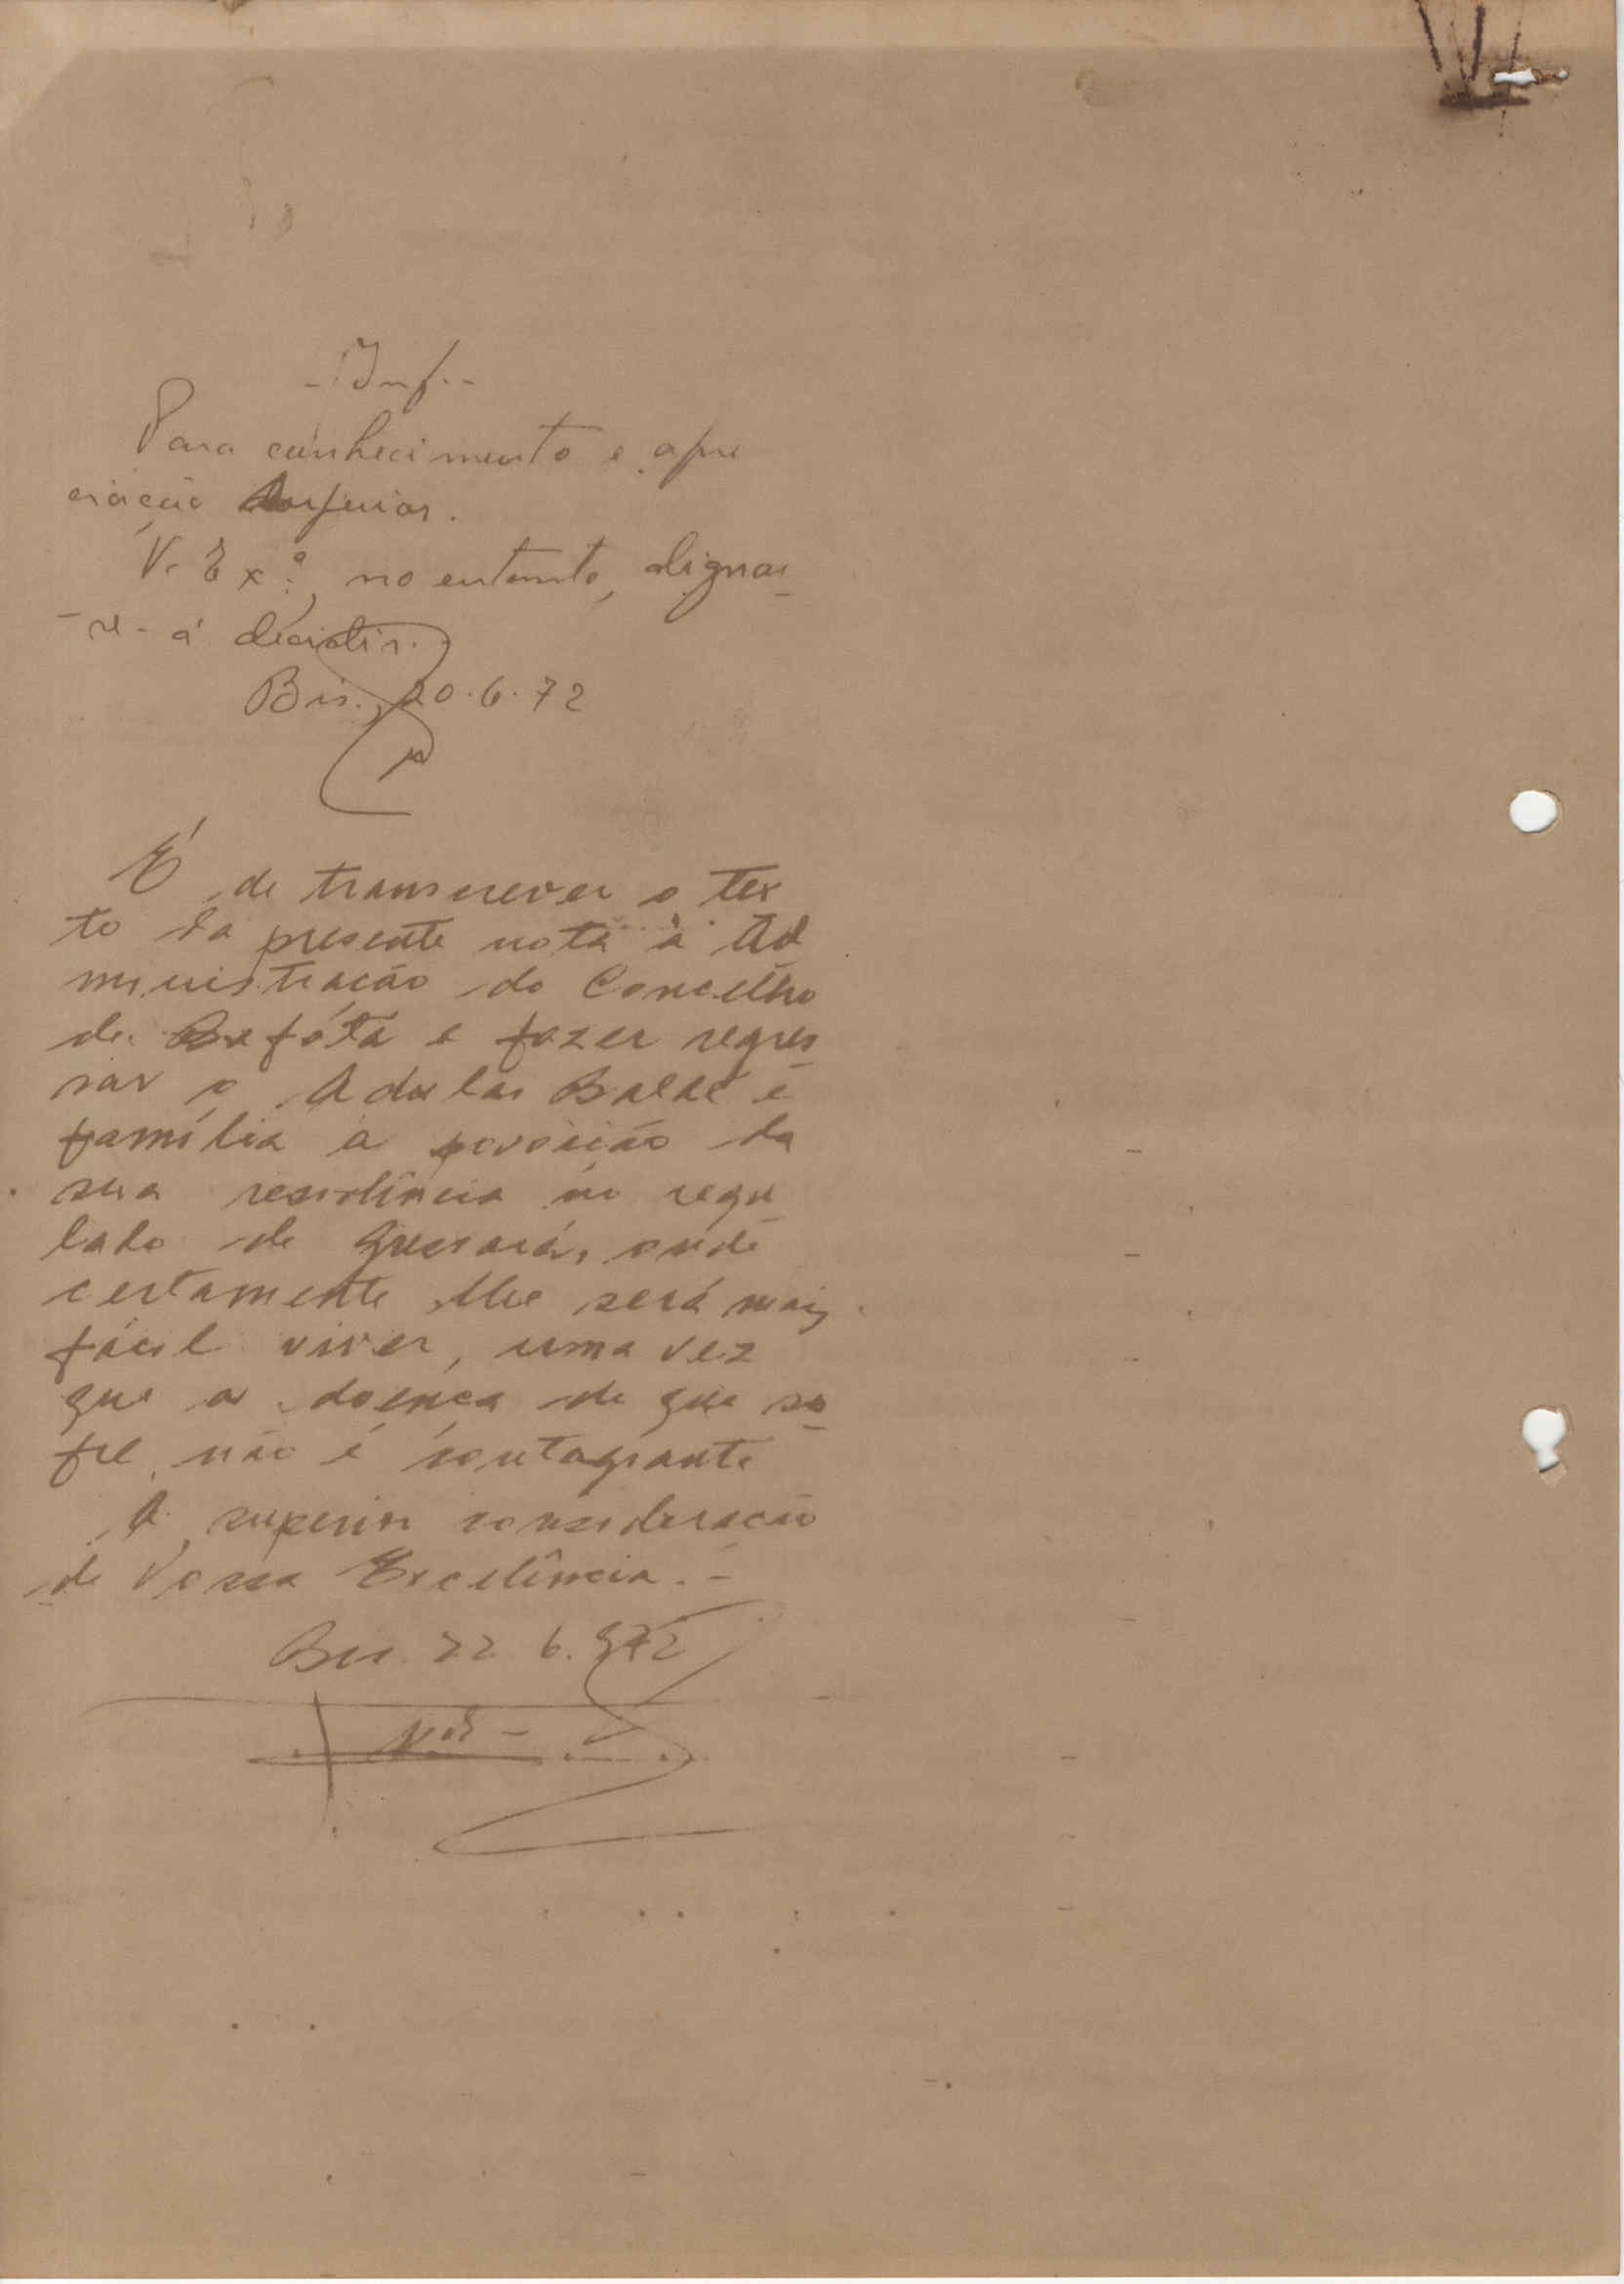 -Inf.-
Para conhecimento e apre
ciação superior.
V. Exª., no entanto, dignar
-se-á decidir.
Bis., 20.6.72
É de transcrever o tex
to da presente nota à Ad
ministração do Concelho
de Bafatá e fazer regres
sar o Adulai Baldé e
família à povoação da
sua residência no regu
lado de onde
certamente lhe será mais
fácil viver, uma vez
que a doença de que so
fre não é contagiante
À superior consideração
de Vossa Excelência.-
Bis. 22.6.972